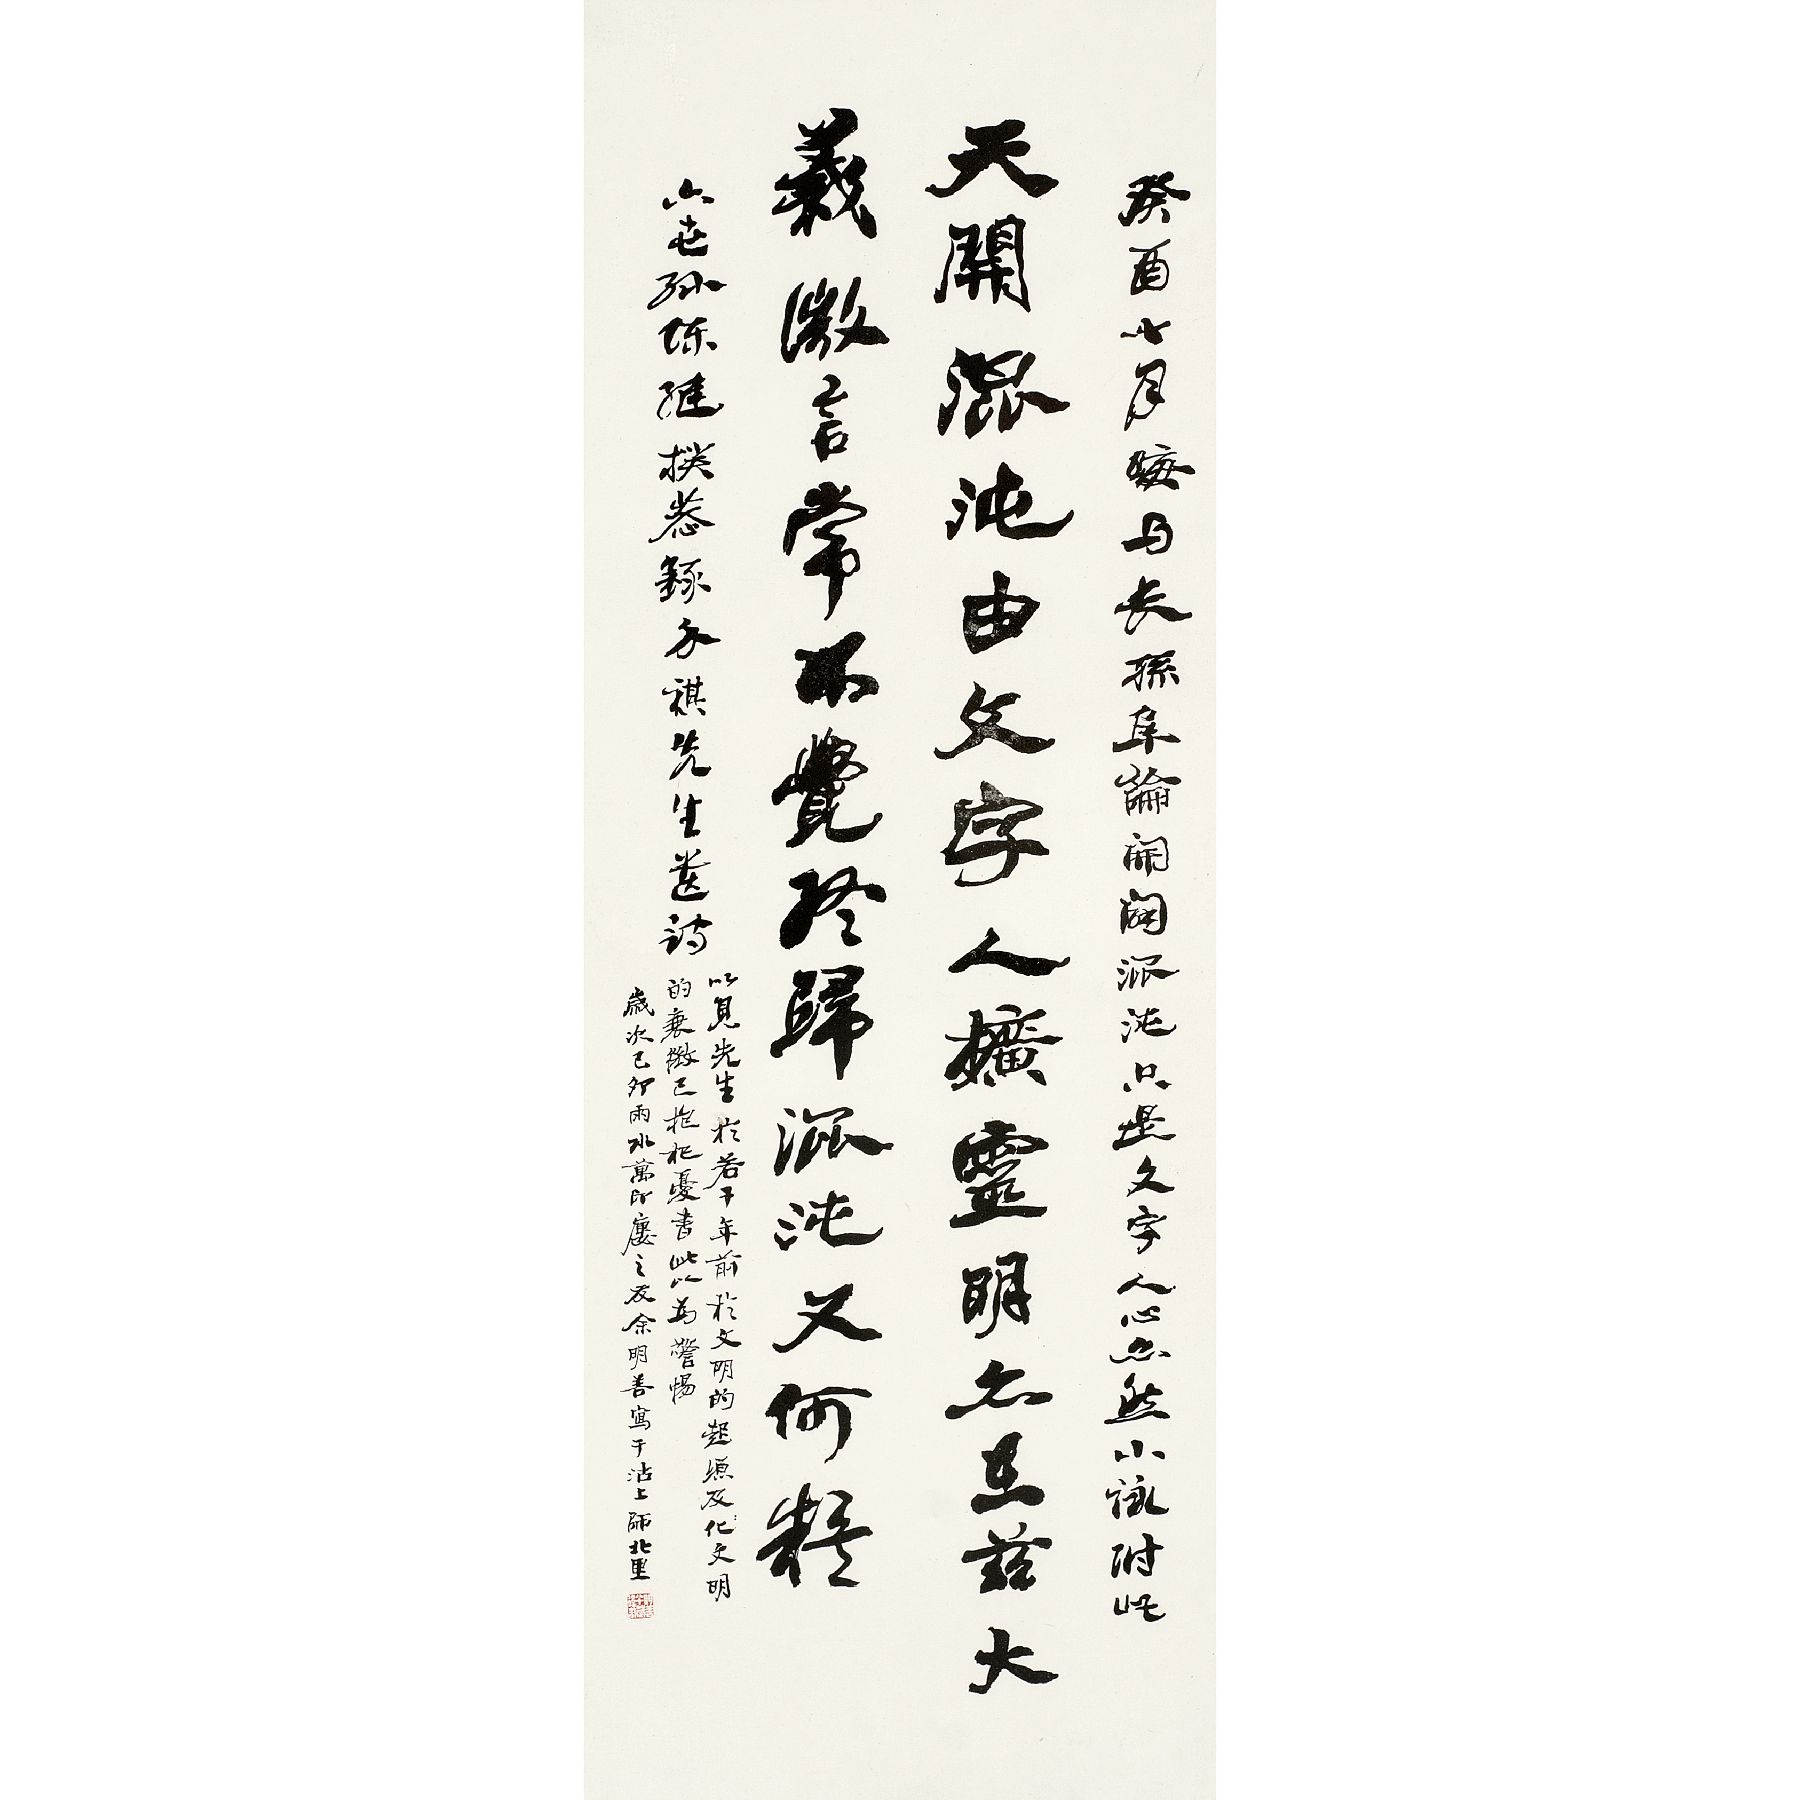 癸酉七月晦与长孫阜論開闢混沌只是文字人心亦然小詠附此
天開混沌由文字人擴靈明亦在茲大
義微言常不覺終歸混沌又何疑
六世孙陈继揆恭録永祺先生遺詩
以見先生於若干年前於文明的起源及化文明
的衰微已抱杞憂書此以為警惕
歲次己卯雨水萬印廔之友余明善寫于沽上師北里